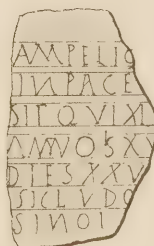 AMPELIO
INPACE
SITQVIXI
ANNVOSXV
DIESXXV
SICLVDO
SINOI